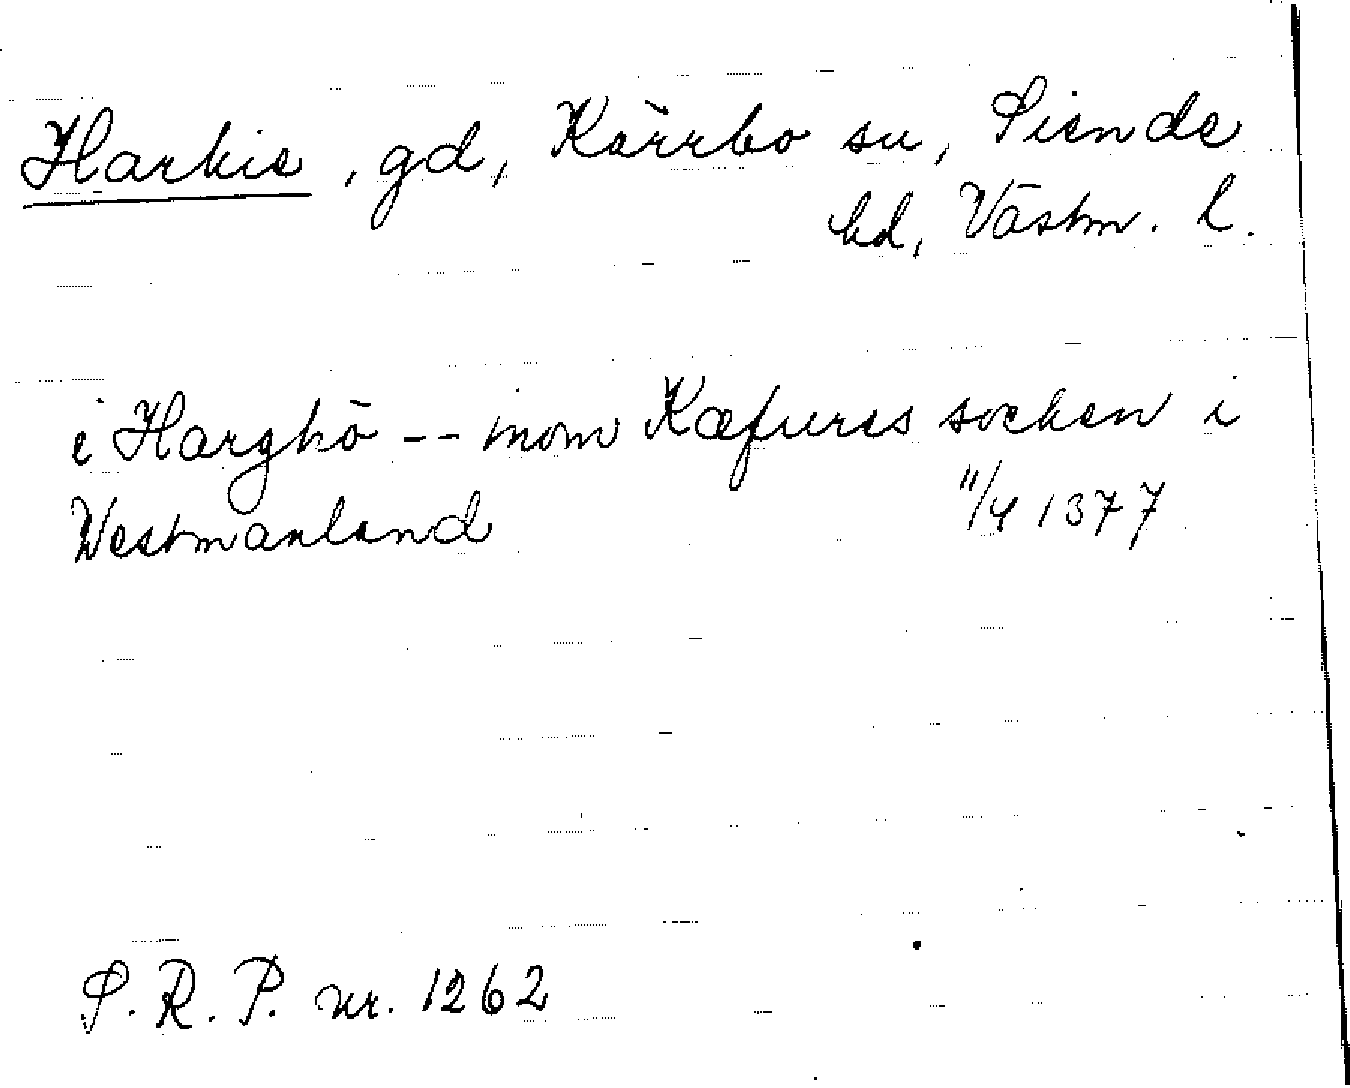 Harkie, gd, Kärrbo sn, Siende
hd, Västm. l.
i Harghö -- inom Kæfueres socken i
Westmanland 11/4 1377
S. R. P. nr. 1262